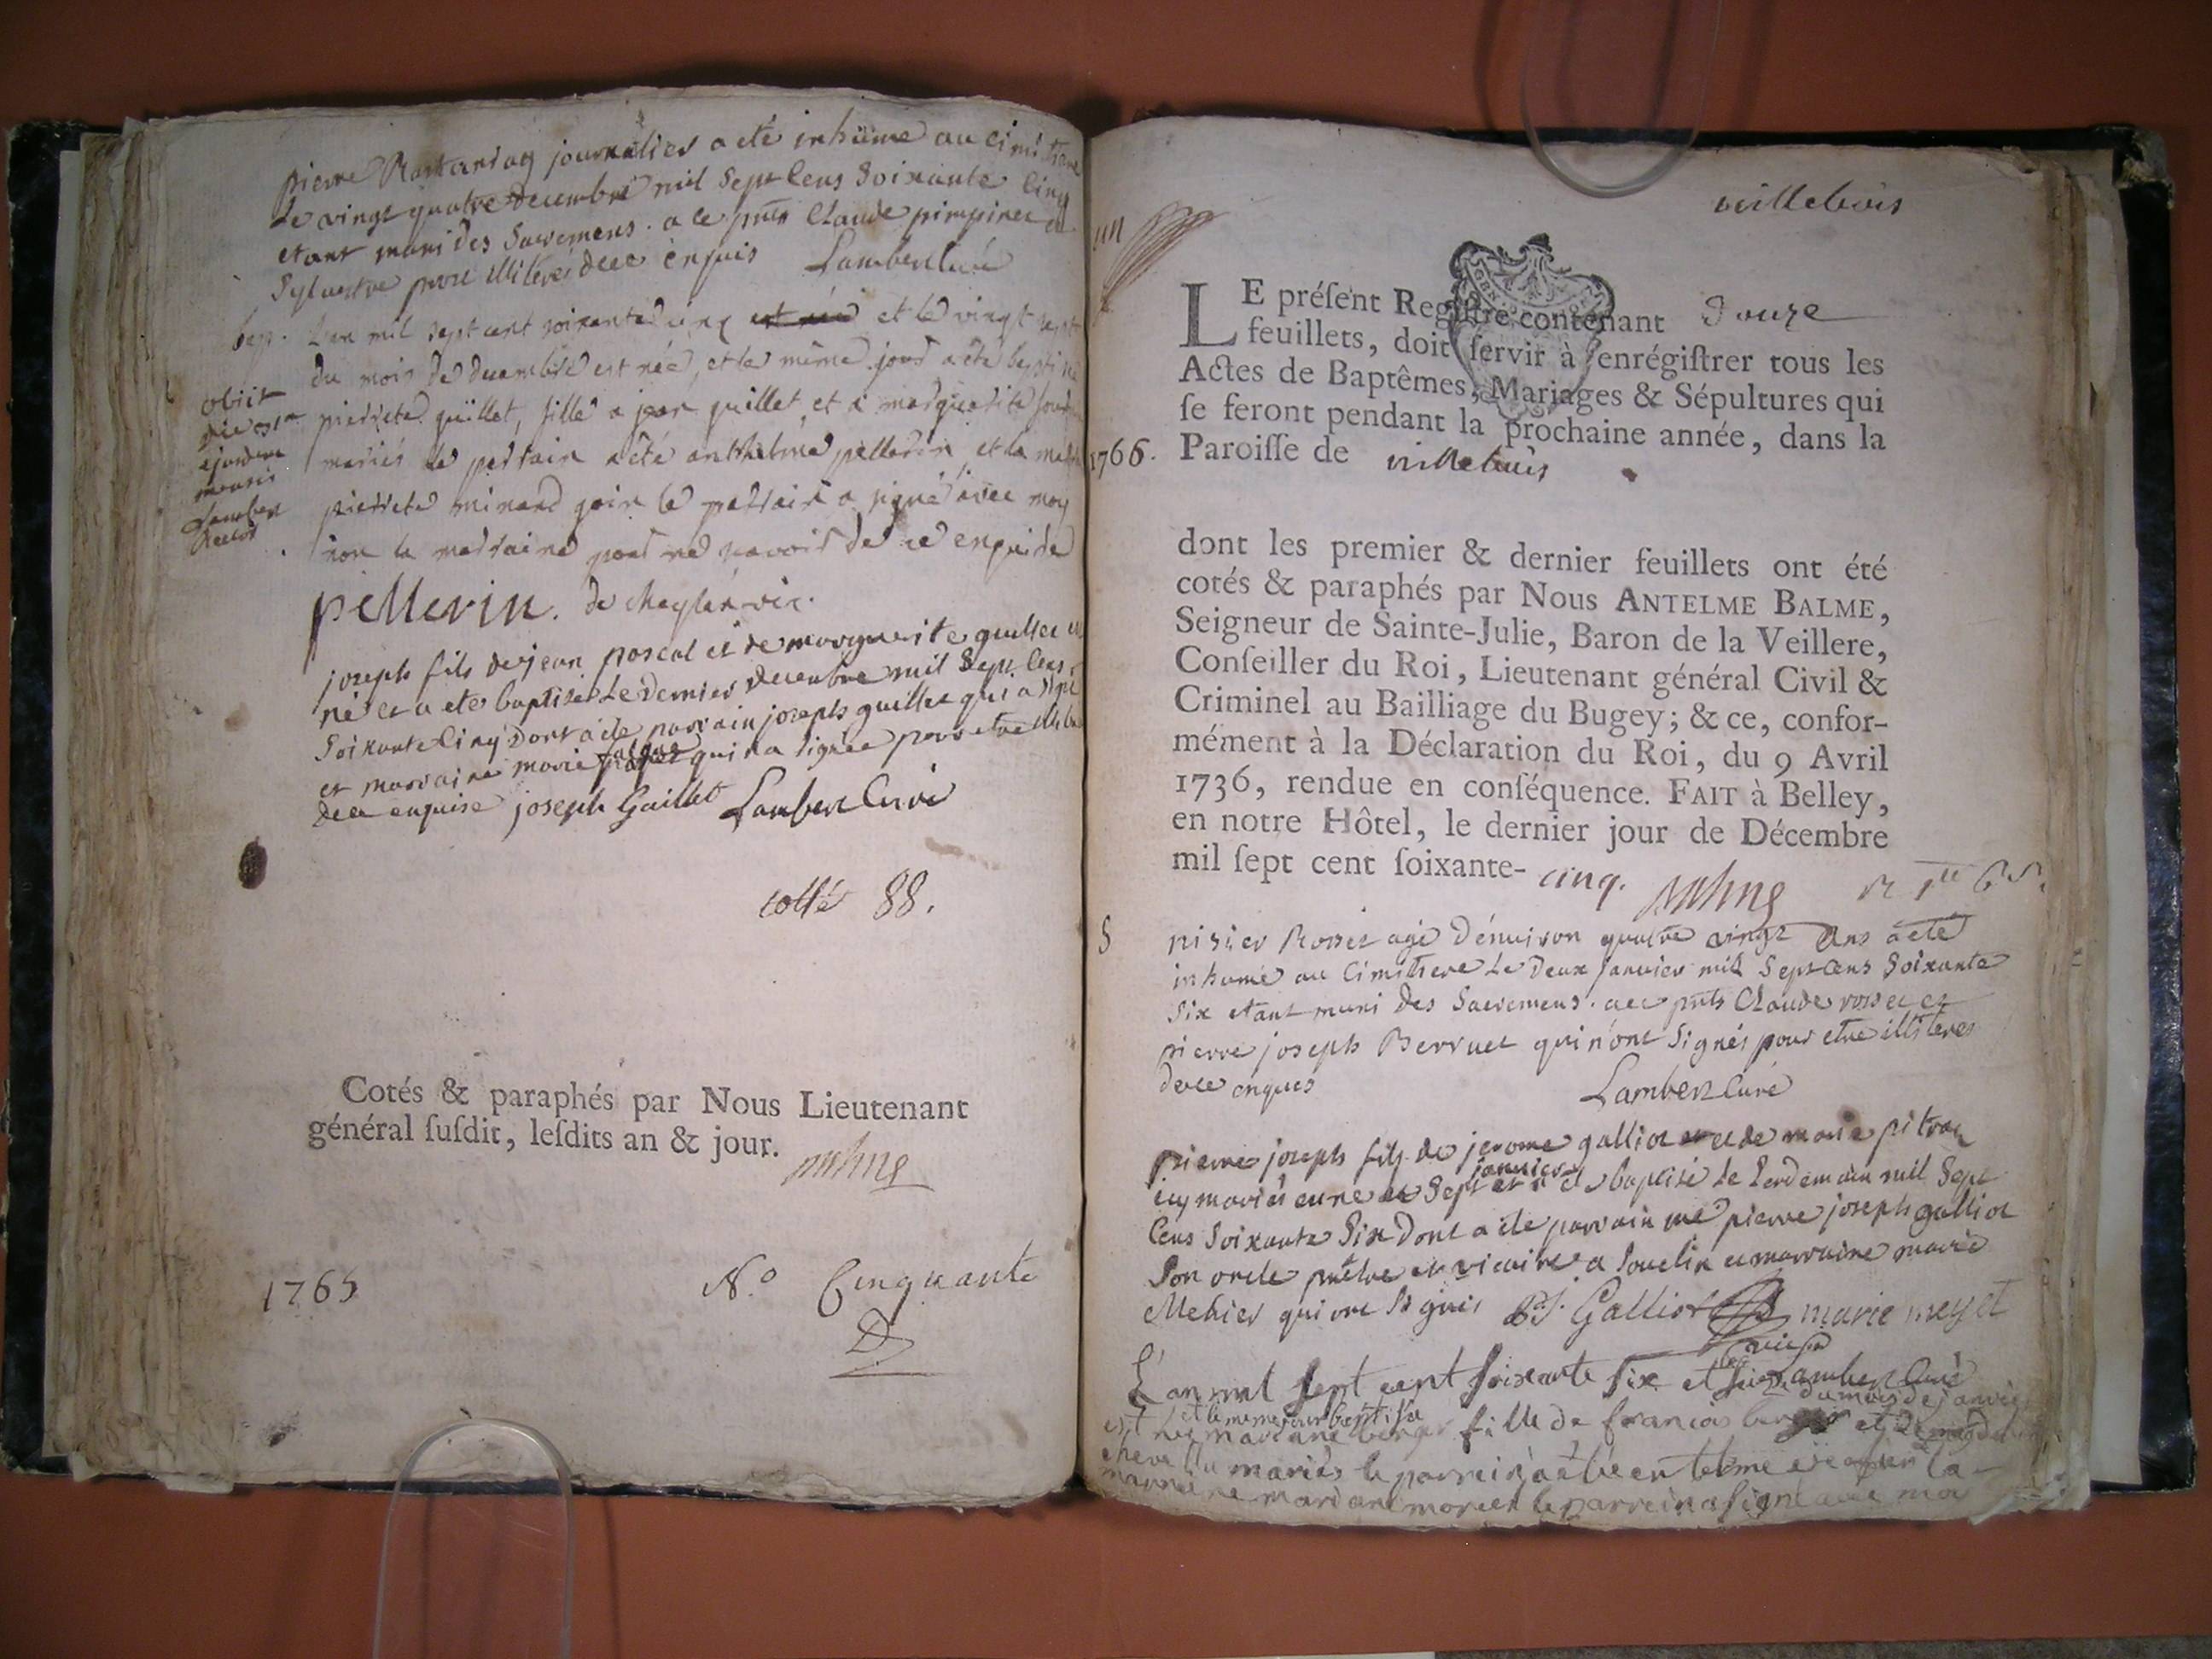 pierre journalier a eté inhumé au cimitiere
Le vingt quatre decembre mil Sept Cens Soixante Cinq
etant muni des Sacremens. a ce pnts Claude pimpinet et
Sylvestre pour illiteré dece enquis Lambert Curé
bap. L'an mil sept cent soixante cinq est née et le vingt sept
du mois de decembre est née, et le même jour a été baptisé
pierrete guillet, fille a jean guillet et a marguerite
mariés le parrain a été anthelme pellerin, et la
pierrete minand le parrain a signé avec moy
non la marraine pour ne savoir de ce enquise
obiit
die 31a
ejusdem
mensis
Lambert
Rector
pellerin. de vic.
joseph fils de jean pascal et de marguerite guillet
né et a eté baptisé Le dernier decembre mil Sept Cens
Soixante Cinq dont a ete parrain joseph guillet qui a signé
et marraine marie qui n'a signée pour etre
dece enquise joseph Guillet Lambert Curé
cotté 88.
Cotés & paraphés par Nous Lieutenant
général ſuſdit, leſdits an & jour.
1765 N.o Cinquante
villebois
un
LE préſent Regiſtre contenant douze
feuillets, doit ſervir à enrégiſtrer tous les
Actes de Baptêmes, Mariages & Sépultures qui
ſe feront pendant la prochaine année, dans la
1766. Paroiſſe de villebois
dont les premier & dernier feuillets ont été
cotés & paraphés par Nous ANTELME BALME,
Seigneur de Sainte-Julie, Baron de la Veillere,
Conſeiller du Roi, Lieutenant général Civil &
Criminel au Bailliage du Bugey; & ce, confor-
mément à la Déclaration du Roi, du 9 Avril
1736, rendue en conſéquence. FAIT à Belley,
en notre Hôtel, le dernier jour de Décembre
mil ſept cent ſoixante- cinq.
S nisier Rosset agé d'environ quatre vingt Ans a eté
inhumé au Cimitiere Le Deux janvier mil Sept Cens Soixante
Six etant muni des Sacremens. a ce pnts Claude rosset et
pierre joseph Berruet qui n'ont Signés pour etre illiteres
dece enquis Lambert Curé
pierre joseph fils de jerome galliot et de marie pitrat
icy mariés est né le Sept janvier et a eté baptisé Le Lendemain mil Sept
Cens Soixante Six Dont a ete parrain me pierre joseph galliot
Son oncle pretre et vicaire a Souclin et marraine marie
Mehier qui ont Signés P.J. Galliot marie meyet
Lambert Curé
L'an mil sept cent soixante six et le du mois de janvier
est née et le meme jour baptisée mariane berger fille de francois berger et de
mariés le parrein a été entelme la
marreine mariane le parrein a signé avec moi